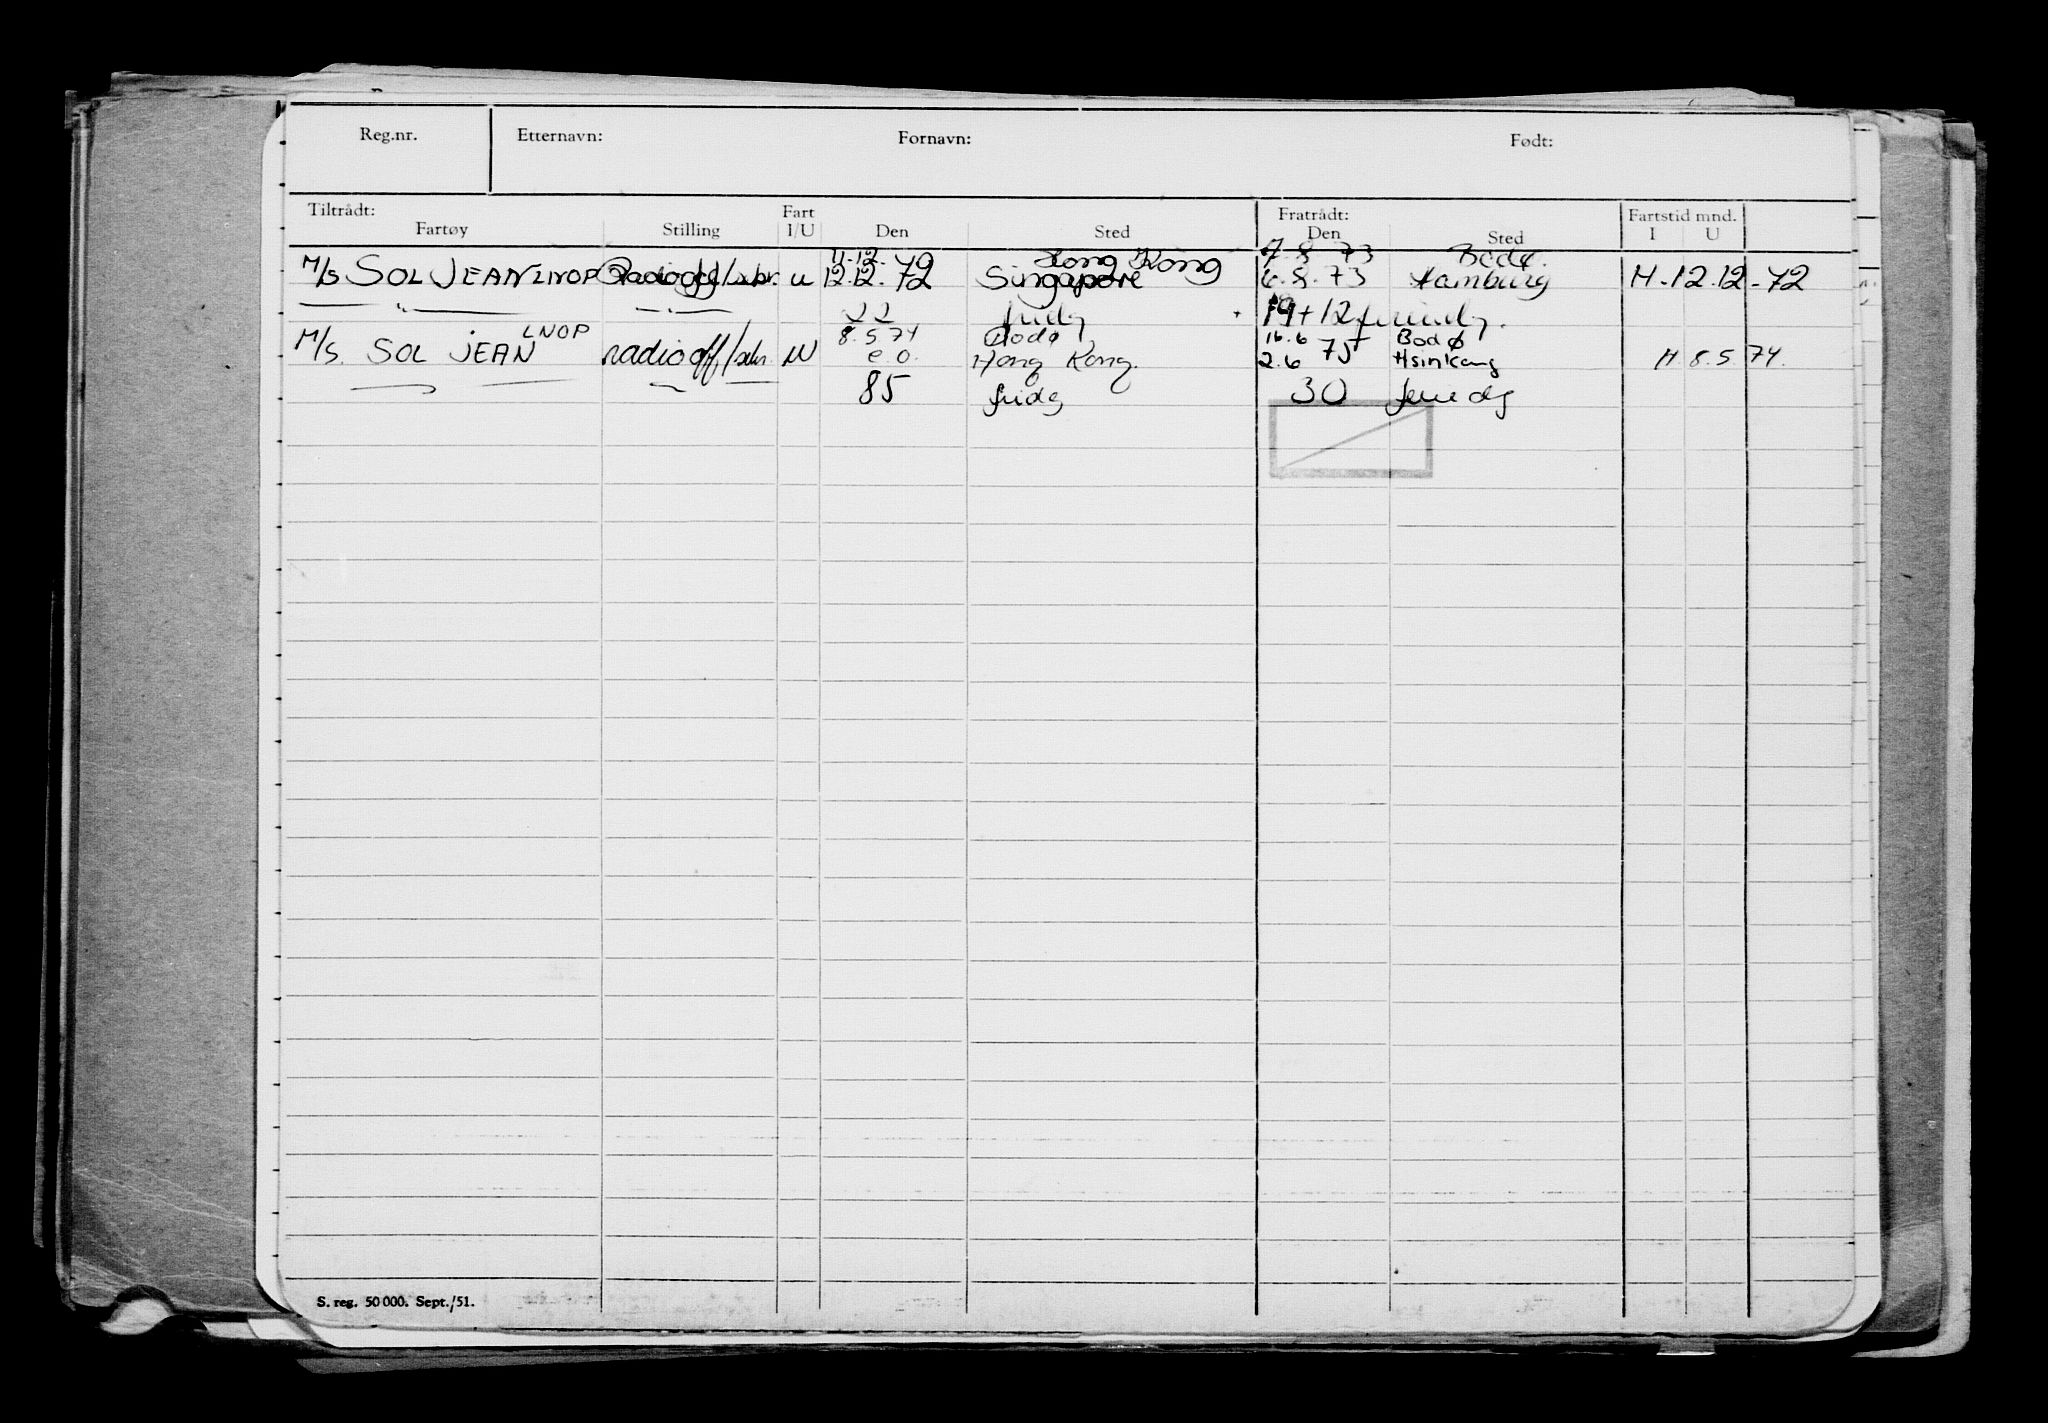 Reg.nr. Etternavn: Fornavn: Født:
Tiltrådt: Fart Fratrådt: Fartstid mnd.
Fartøy Stilling I/U Den Sted Den Sted I U
11.12.72 Hong Kong 7.8.73 Bodø.
M/S SOL JEAN LNOP Radiooff/skr. u 12.12.72 Singapore 6.8.73 Hamburg H.12.12-72
22 fridg 19+12 feriedg.
LNOP 8.5 74 Bodø 16.6 Bodø
M/S. SOL JEAN radiooff/skr. U e.o. Hong Kong. 2.6 75 Hsinkang H 8.5.74.
85 fridg 30 feriedg
S. reg. 50 000. Sept./51.